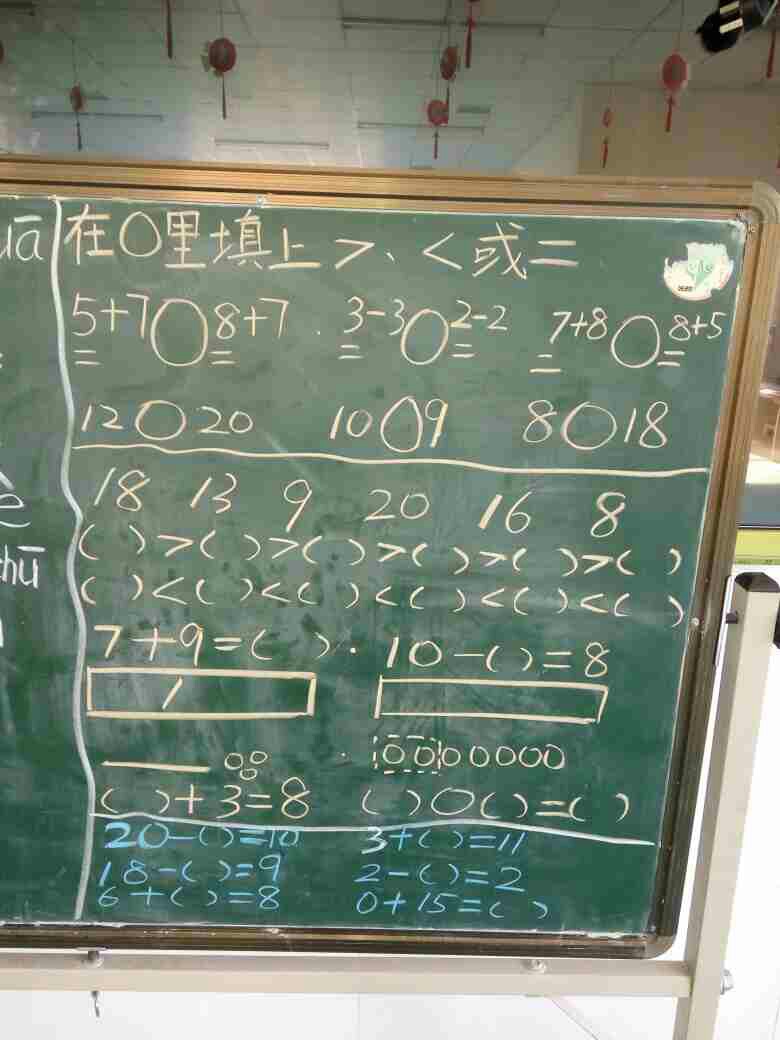 uā
在○里填上>、<或=
5+7○8+7 3-3○2-2 7+8○8+5
12○20 10○9 8○18
18 13 9 20 16 8
( )>( )>( )>( )>( )>( )
( )<( )<( )<( )<( )<( )
7+9=( ) 10-( )=8
( )+3=8 ( )○( )=( )
20-( )=10 3+( )=11
18-( )=9 2-( )=2
6+( )=8 0+15=( )
hū